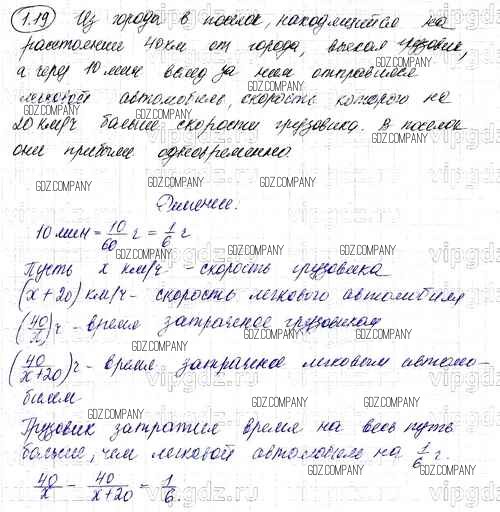 1.19 Из города в поселок, находящийся на
расстоянии 40 км от города, выехал грузовик,
а через 10 мин вслед за ним отправился
легковой автомобиль, скорость которого на
20 км/ч больше скорости грузовика. В поселок
они прибыли одновременно.
Решение:
10 мин = 10/60 ч = 1/6 ч
Пусть x км/ч - скорость грузовика
(x+20) км/ч - скорость легкового автомобиля
(40/x) ч - время затраченое грузовиком
(40/x+20) ч - время затраченое легковым автомо-
билем
Грузовик затратил время на весь путь
больше, чем легковой автомобиль на 1/6 ч.
40/x - 40/x+20 = 1/6.
GDZ.COMPANY
vipgdz.ru